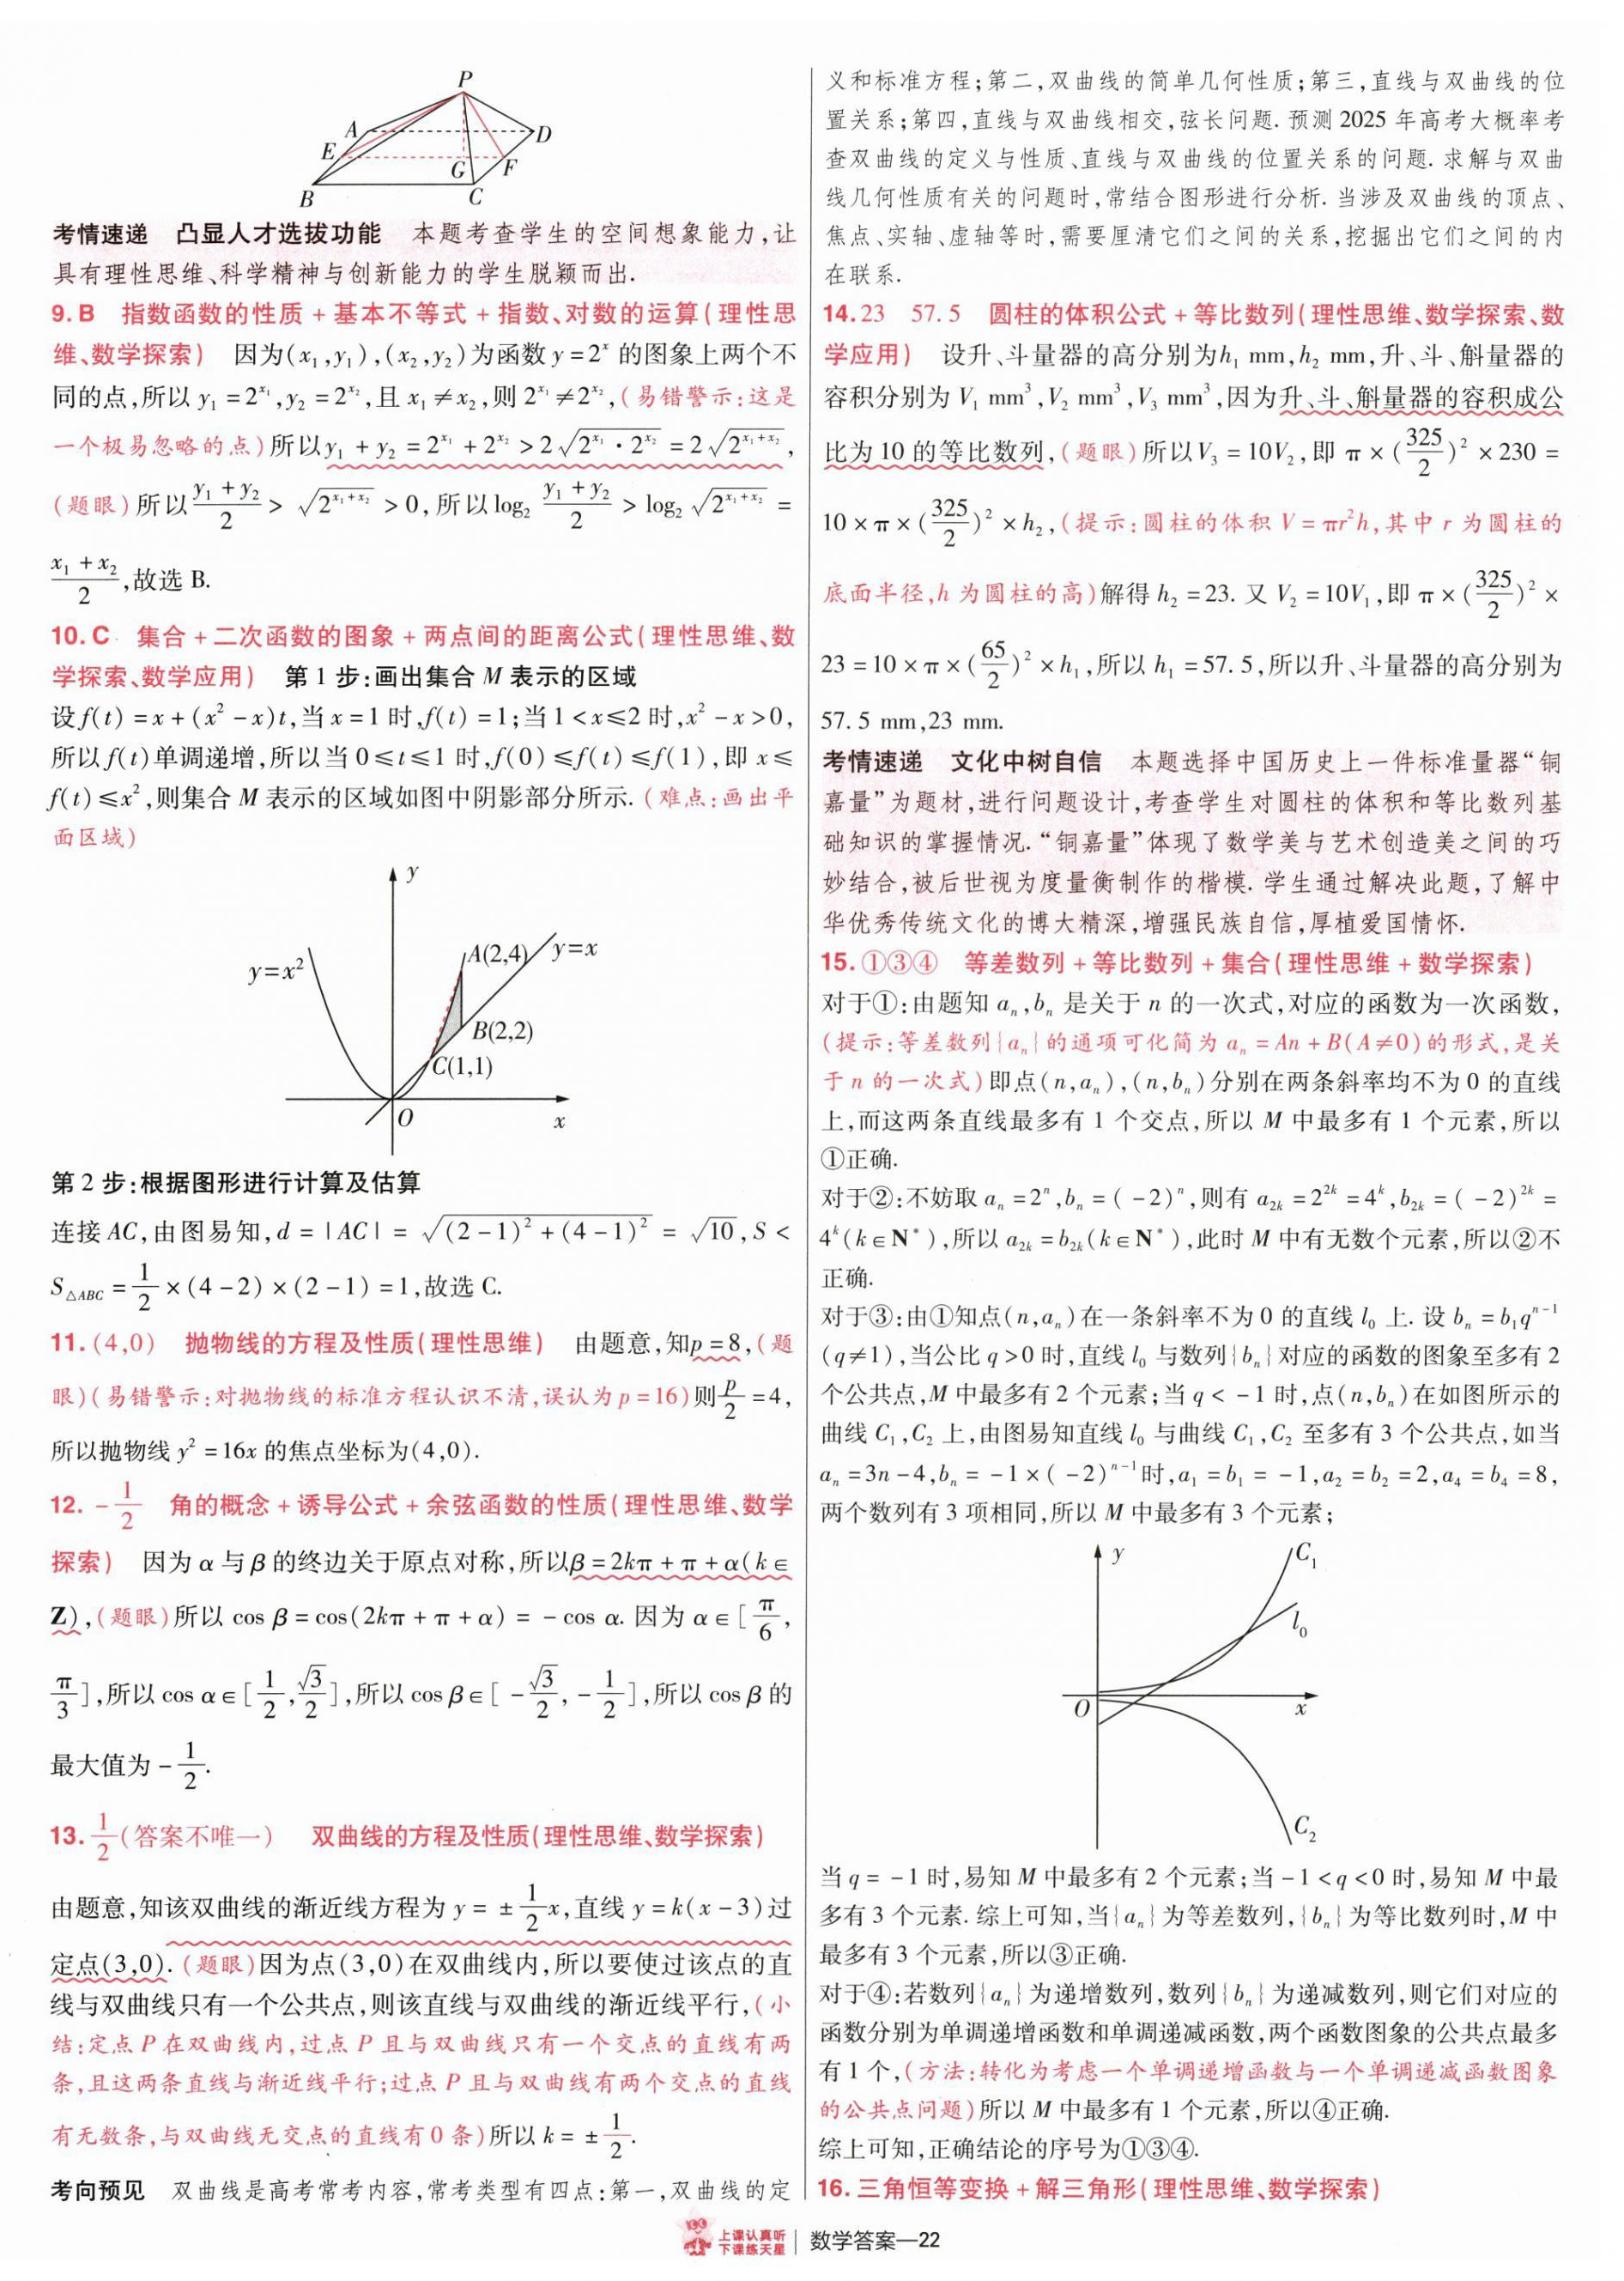 P
A
D
E
G
F
B
C
考情速递　凸显人才选拔功能　本题考查学生的空间想象能力,让
具有理性思维、科学精神与创新能力的学生脱颖而出.
9. B　指数函数的性质 + 基本不等式 + 指数、对数的运算(理性思
维、数学探索)　因为(x₁,y₁),(x₂,y₂)为函数 y = 2ˣ 的图象上两个不
同的点,所以 y₁ = 2^{x₁},y₂ = 2^{x₂},且 x₁ ≠ x₂,则 2^{x₁} ≠ 2^{x₂},(易错警示:这是
一个极易忽略的点)所以 y₁ + y₂ = 2^{x₁} + 2^{x₂} > 2√(2^{x₁}·2^{x₂}) = 2√(2^{x₁+x₂}),
(题眼)所以 (y₁+y₂)/2 > √(2^{x₁+x₂}) > 0,所以 log₂ (y₁+y₂)/2 > log₂ √(2^{x₁+x₂}) =
(x₁+x₂)/2,故选 B.
10. C　集合 + 二次函数的图象 + 两点间的距离公式(理性思维、数
学探索、数学应用)　第 1 步:画出集合 M 表示的区域
设 f(t) = x + (x² - x)t,当 x = 1 时,f(t) = 1;当 1 < x ≤ 2 时,x² - x > 0,
所以 f(t)单调递增,所以当 0 ≤ t ≤ 1 时,f(0) ≤ f(t) ≤ f(1),即 x ≤
f(t) ≤ x²,则集合 M 表示的区域如图中阴影部分所示.(难点:画出平
面区域)
y
A(2,4)
y=x
y=x²
B(2,2)
C(1,1)
O
x
第 2 步:根据图形进行计算及估算
连接 AC,由图易知,d = |AC| = √((2-1)² + (4-1)²) = √10,S <
S△ABC = 1/2 × (4-2) × (2-1) = 1,故选 C.
11. (4,0)　抛物线的方程及性质(理性思维)　由题意,知 p = 8,(题
眼)(易错警示:对抛物线的标准方程认识不清,误认为 p = 16)则 p/2 = 4,
所以抛物线 y² = 16x 的焦点坐标为(4,0).
12. -1/2　角的概念 + 诱导公式 + 余弦函数的性质(理性思维、数学
探索)　因为 α 与 β 的终边关于原点对称,所以 β = 2kπ + π + α(k ∈
Z),(题眼)所以 cos β = cos(2kπ + π + α) = - cos α. 因为 α ∈ [π/6,
π/3],所以 cos α ∈ [1/2, √3/2],所以 cos β ∈ [-√3/2, -1/2],所以 cos β 的
最大值为 -1/2.
13. 1/2(答案不唯一)　双曲线的方程及性质(理性思维、数学探索)
由题意,知该双曲线的渐近线方程为 y = ±1/2 x,直线 y = k(x-3)过
定点(3,0).(题眼)因为点(3,0)在双曲线内,所以要使过该点的直
线与双曲线只有一个公共点,则该直线与双曲线的渐近线平行,(小
结:定点 P 在双曲线内,过点 P 且与双曲线只有一个交点的直线有两
条,且这两条直线与渐近线平行;过点 P 且与双曲线有两个交点的直线
有无数条,与双曲线无交点的直线有 0 条)所以 k = ±1/2.
考向预见　双曲线是高考常考内容,常考类型有四点:第一,双曲线的定
义和标准方程;第二,双曲线的简单几何性质;第三,直线与双曲线的位
置关系;第四,直线与双曲线相交,弦长问题. 预测 2025 年高考大概率考
查双曲线的定义与性质、直线与双曲线的位置关系的问题. 求解与双曲
线几何性质有关的问题时,常结合图形进行分析. 当涉及双曲线的顶点、
焦点、实轴、虚轴等时,需要厘清它们之间的关系,挖掘出它们之间的内
在联系.
14. 23　57.5　圆柱的体积公式 + 等比数列(理性思维、数学探索、数
学应用)　设升、斗量器的高分别为 h₁ mm,h₂ mm,升、斗、斛量器的
容积分别为 V₁ mm³,V₂ mm³,V₃ mm³,因为升、斗、斛量器的容积成公
比为 10 的等比数列,(题眼)所以 V₃ = 10V₂,即 π × (325/2)² × 230 =
10 × π × (325/2)² × h₂,(提示:圆柱的体积 V = πr²h,其中 r 为圆柱的
底面半径,h 为圆柱的高)解得 h₂ = 23. 又 V₂ = 10V₁,即 π × (325/2)² ×
23 = 10 × π × (65/2)² × h₁,所以 h₁ = 57.5,所以升、斗量器的高分别为
57.5 mm,23 mm.
考情速递　文化中树自信　本题选择中国历史上一件标准量器“铜
嘉量”为题材,进行问题设计,考查学生对圆柱的体积和等比数列基
础知识的掌握情况.“铜嘉量”体现了数学美与艺术创造美之间的巧
妙结合,被后世视为度量衡制作的楷模. 学生通过解决此题,了解中
华优秀传统文化的博大精深,增强民族自信,厚植爱国情怀.
15. ①③④　等差数列 + 等比数列 + 集合(理性思维 + 数学探索)
对于①:由题知 aₙ,bₙ 是关于 n 的一次式,对应的函数为一次函数,
(提示:等差数列{aₙ}的通项可化简为 aₙ = An + B(A≠0)的形式,是关
于 n 的一次式)即点(n,aₙ),(n,bₙ)分别在两条斜率均不为 0 的直线
上,而这两条直线最多有 1 个交点,所以 M 中最多有 1 个元素,所以
①正确.
对于②:不妨取 aₙ = 2ⁿ,bₙ = (-2)ⁿ,则有 a₂ₖ = 2²ᵏ = 4ᵏ,b₂ₖ = (-2)²ᵏ =
4ᵏ(k∈N*),所以 a₂ₖ = b₂ₖ(k∈N*),此时 M 中有无数个元素,所以②不
正确.
对于③:由①知点(n,aₙ)在一条斜率不为 0 的直线 l₀ 上. 设 bₙ = b₁qⁿ⁻¹
(q≠1),当公比 q>0 时,直线 l₀ 与数列{bₙ}对应的函数的图象至多有 2
个公共点,M 中最多有 2 个元素;当 q < -1 时,点(n,bₙ)在如图所示的
曲线 C₁,C₂ 上,由图易知直线 l₀ 与曲线 C₁,C₂ 至多有 3 个公共点,如当
aₙ = 3n-4,bₙ = -1×(-2)ⁿ⁻¹时,a₁ = b₁ = -1,a₂ = b₂ = 2,a₄ = b₄ = 8,
两个数列有 3 项相同,所以 M 中最多有 3 个元素;
y
C₁
l₀
O
x
C₂
当 q = -1 时,易知 M 中最多有 2 个元素;当 -1<q<0 时,易知 M 中最
多有 3 个元素. 综上可知,当{aₙ}为等差数列,{bₙ}为等比数列时,M 中
最多有 3 个元素,所以③正确.
对于④:若数列{aₙ}为递增数列,数列{bₙ}为递减数列,则它们对应的
函数分别为单调递增函数和单调递减函数,两个函数图象的公共点最多
有 1 个,(方法:转化为考虑一个单调递增函数与一个单调递减函数图象
的公共点问题)所以 M 中最多有 1 个元素,所以④正确.
综上可知,正确结论的序号为①③④.
16. 三角恒等变换 + 解三角形(理性思维、数学探索)
上课认真听
下课练天星
数学答案—22